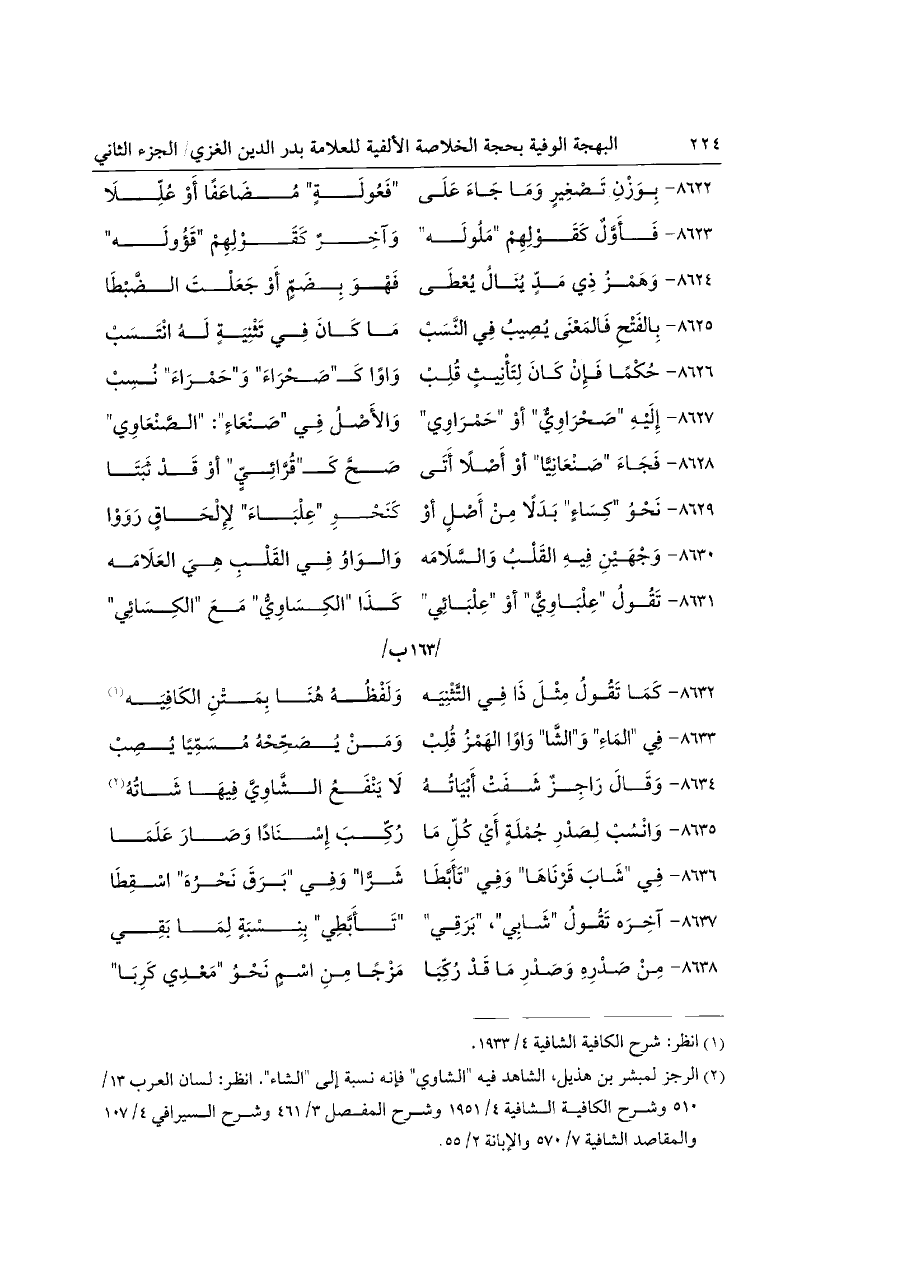 ٢٢٤ البهجة الوفية بحجة الخلاصة الألفية للعلامة بدر الدين الغزي/ الجزء الثاني
٨٦٢٢- بِوَزْنِ تَصْغِيرٍ وَمَا جَاءَ عَلَى "فَعُولَةٍ" مُضَاعَفًا أَوْ عُلِّلَا
٨٦٢٣- فَأَوَّلٌ كَقَوْلِهِمْ "مَلُولَه" وَآخِرٌ كَقَوْلِهِمْ "قَؤُولَه"
٨٦٢٤- وَهَمْزُ ذِي مَدٍّ يُنَالُ يُعْطَى فَهْوَ بِضَمٍّ أَوْ جَعَلْتَ الضَّبْطَا
٨٦٢٥- بِالفَتْحِ فَالمَعْنَى يُصِيبُ فِي النَّسَبْ مَا كَانَ فِي تَثْنِيَةٍ لَهُ انْتَسَبْ
٨٦٢٦- حُكْمًا فَإِنْ كَانَ لِتَأْنِيثٍ قُلِبْ وَاوًا كَـ"صَحْرَاءَ" وَ"حَمْرَاءَ" نُسِبْ
٨٦٢٧- إِلَيْهِ "صَحْرَاوِيٌّ" أَوْ "حَمْرَاوِي" وَالأَصْلُ فِي "صَنْعَاءٍ": "الصَّنْعَاوِي"
٨٦٢٨- فَجَاءَ "صَنْعَانِيًّا" أَوْ أَصْلًا أَتَى صَحَّ كَـ"قُرَّائِيٍّ" أَوْ قَدْ ثَبَتَا
٨٦٢٩- نَحْوُ "كِسَاءٍ" بَدَلًا مِنْ أَصْلٍ أَوْ كَنَحْوِ "عِلْبَاءَ" لِإِلْحَاقٍ رَوَوْا
٨٦٣٠- وَجْهَيْنِ فِيهِ القَلْبُ وَالسَّلَامَه وَالوَاوُ فِي القَلْبِ هِيَ العَلَامَه
٨٦٣١- تَقُولُ "عِلْبَاوِيٌّ" أَوْ "عِلْبَائِي" كَذَا "الكِسَاوِيُّ" مَعَ "الكِسَائِي"
/١٦٣ب/
٨٦٣٢- كَمَا تَقُولُ مِثْلَ ذَا فِي التَّثْنِيَه وَلَفْظُهُ هُنَا بِمَتْنِ الكَافِيَه(١)
٨٦٣٣- فِي "المَاءِ" وَ"الشَّا" وَاوًا الهَمْزُ قُلِبْ وَمَنْ يُصَحِّحْهُ مُسَمِّيًا يُصِبْ
٨٦٣٤- وَقَالَ رَاجِزٌ شَفَتْ أَبْيَاتُهُ لَا يَنْفَعُ الشَّاوِيَّ فِيهَا شَاتُهُ(٢)
٨٦٣٥- وَانْسُبْ لِصَدْرِ جُمْلَةٍ أَيْ كُلِّ مَا رُكِّبَ إِسْنَادًا وَصَارَ عَلَمَا
٨٦٣٦- فِي "شَابَ قَرْنَاهَا" وَفِي "تَأَبَّطَا شَرًّا" وَفِي "بَرَقَ نَحْرُهُ" اسْقِطَا
٨٦٣٧- آخِرَه تَقُولُ "شَابِي"، "بَرَقِي" "تَأَبَّطِي" بِنِسْبَةٍ لِمَا بَقِي
٨٦٣٨- مِنْ صَدْرِهِ وَصَدْرِ مَا قَدْ رُكِّبَا مَزْجًا مِنِ اسْمٍ نَحْوُ "مَعْدِي كَرِبَا"
(١) انظر: شرح الكافية الشافية ٤/ ١٩٣٣.
(٢) الرجز لمبشر بن هذيل، الشاهد فيه "الشاوي" فإنه نسبة إلى "الشاء". انظر: لسان العرب ١٣/
٥١٠ وشرح الكافية الشافية ٤/ ١٩٥١ وشرح المفصل ٣/ ٤٦١ وشرح السيرافي ٤/ ١٠٧
والمقاصد الشافية ٧/ ٥٧٠ والإبانة ٢/ ٥٥.